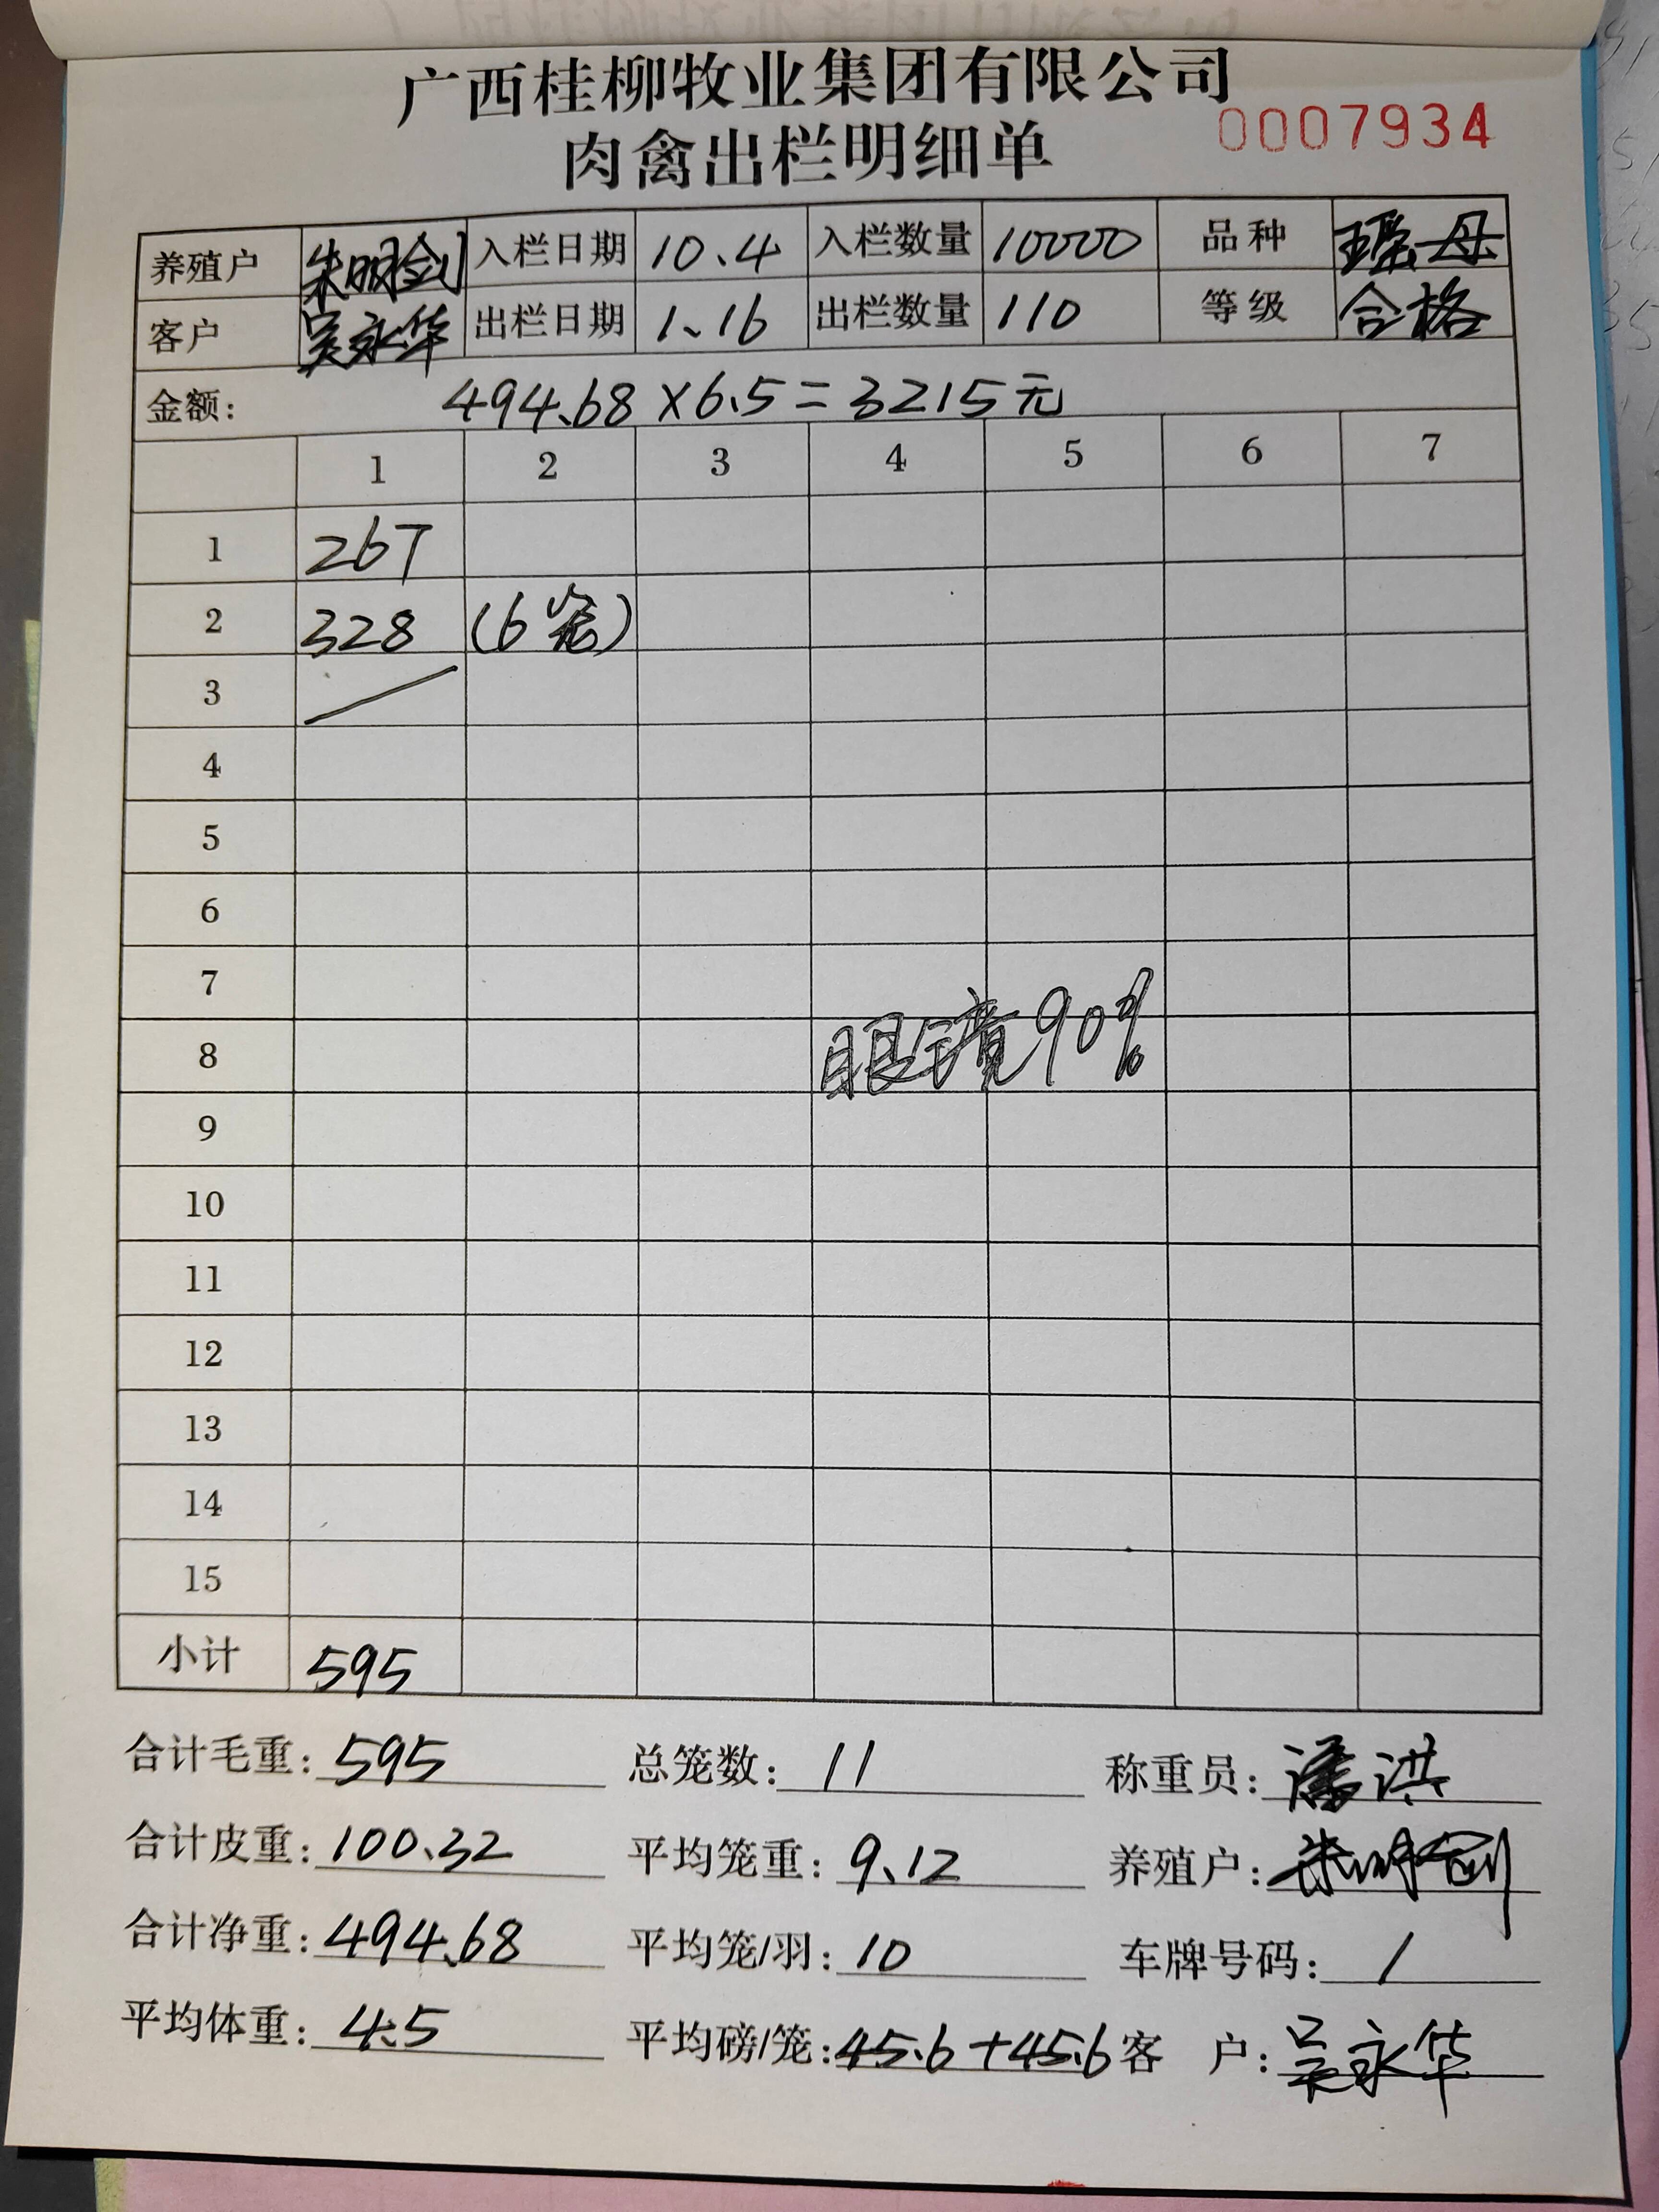 广西桂柳牧业集团有限公司
肉禽出栏明细单 0007934
养殖户 朱明剑 入栏日期 10.4 入栏数量 10000 品种 瑶母
客户 吴永华 出栏日期 1.16 出栏数量 110 等级 合格
金额: 494.68×6.5=3215元
1 2 3 4 5 6 7
1 267
2 328 (6笼)
3
4
5
6
7
8 眼镜90%
9
10
11
12
13
14
15
小计 595
合计毛重: 595 总笼数: 11 称重员: 潘洪
合计皮重: 100.32 平均笼重: 9.12 养殖户: 朱明剑
合计净重: 494.68 平均笼/羽: 10 车牌号码: /
平均体重: 4.5 平均磅/笼: 45.6+45.6 客户: 吴永华